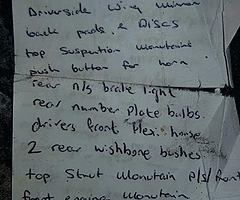 Driverside wing mirror
back pads & Discs
top Suspention Mountains
push button for horn
rear n/s brake light
rear number plate bulbs.
drivers front flexi house
2 rear wishbone bushes
top Strut Mountain P/s/front
front engine Mountain